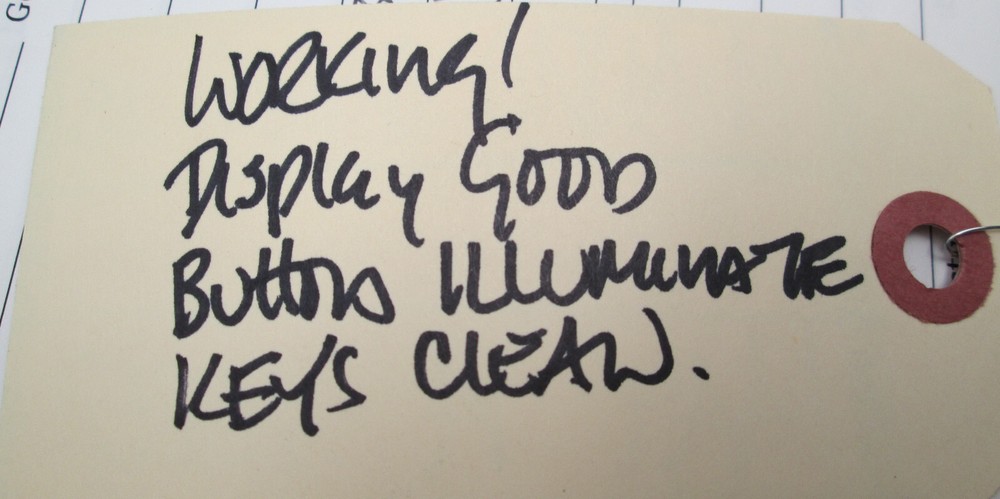 Working!
Display Good
Buttons ILLUMINATE
KEYS CLEAN.